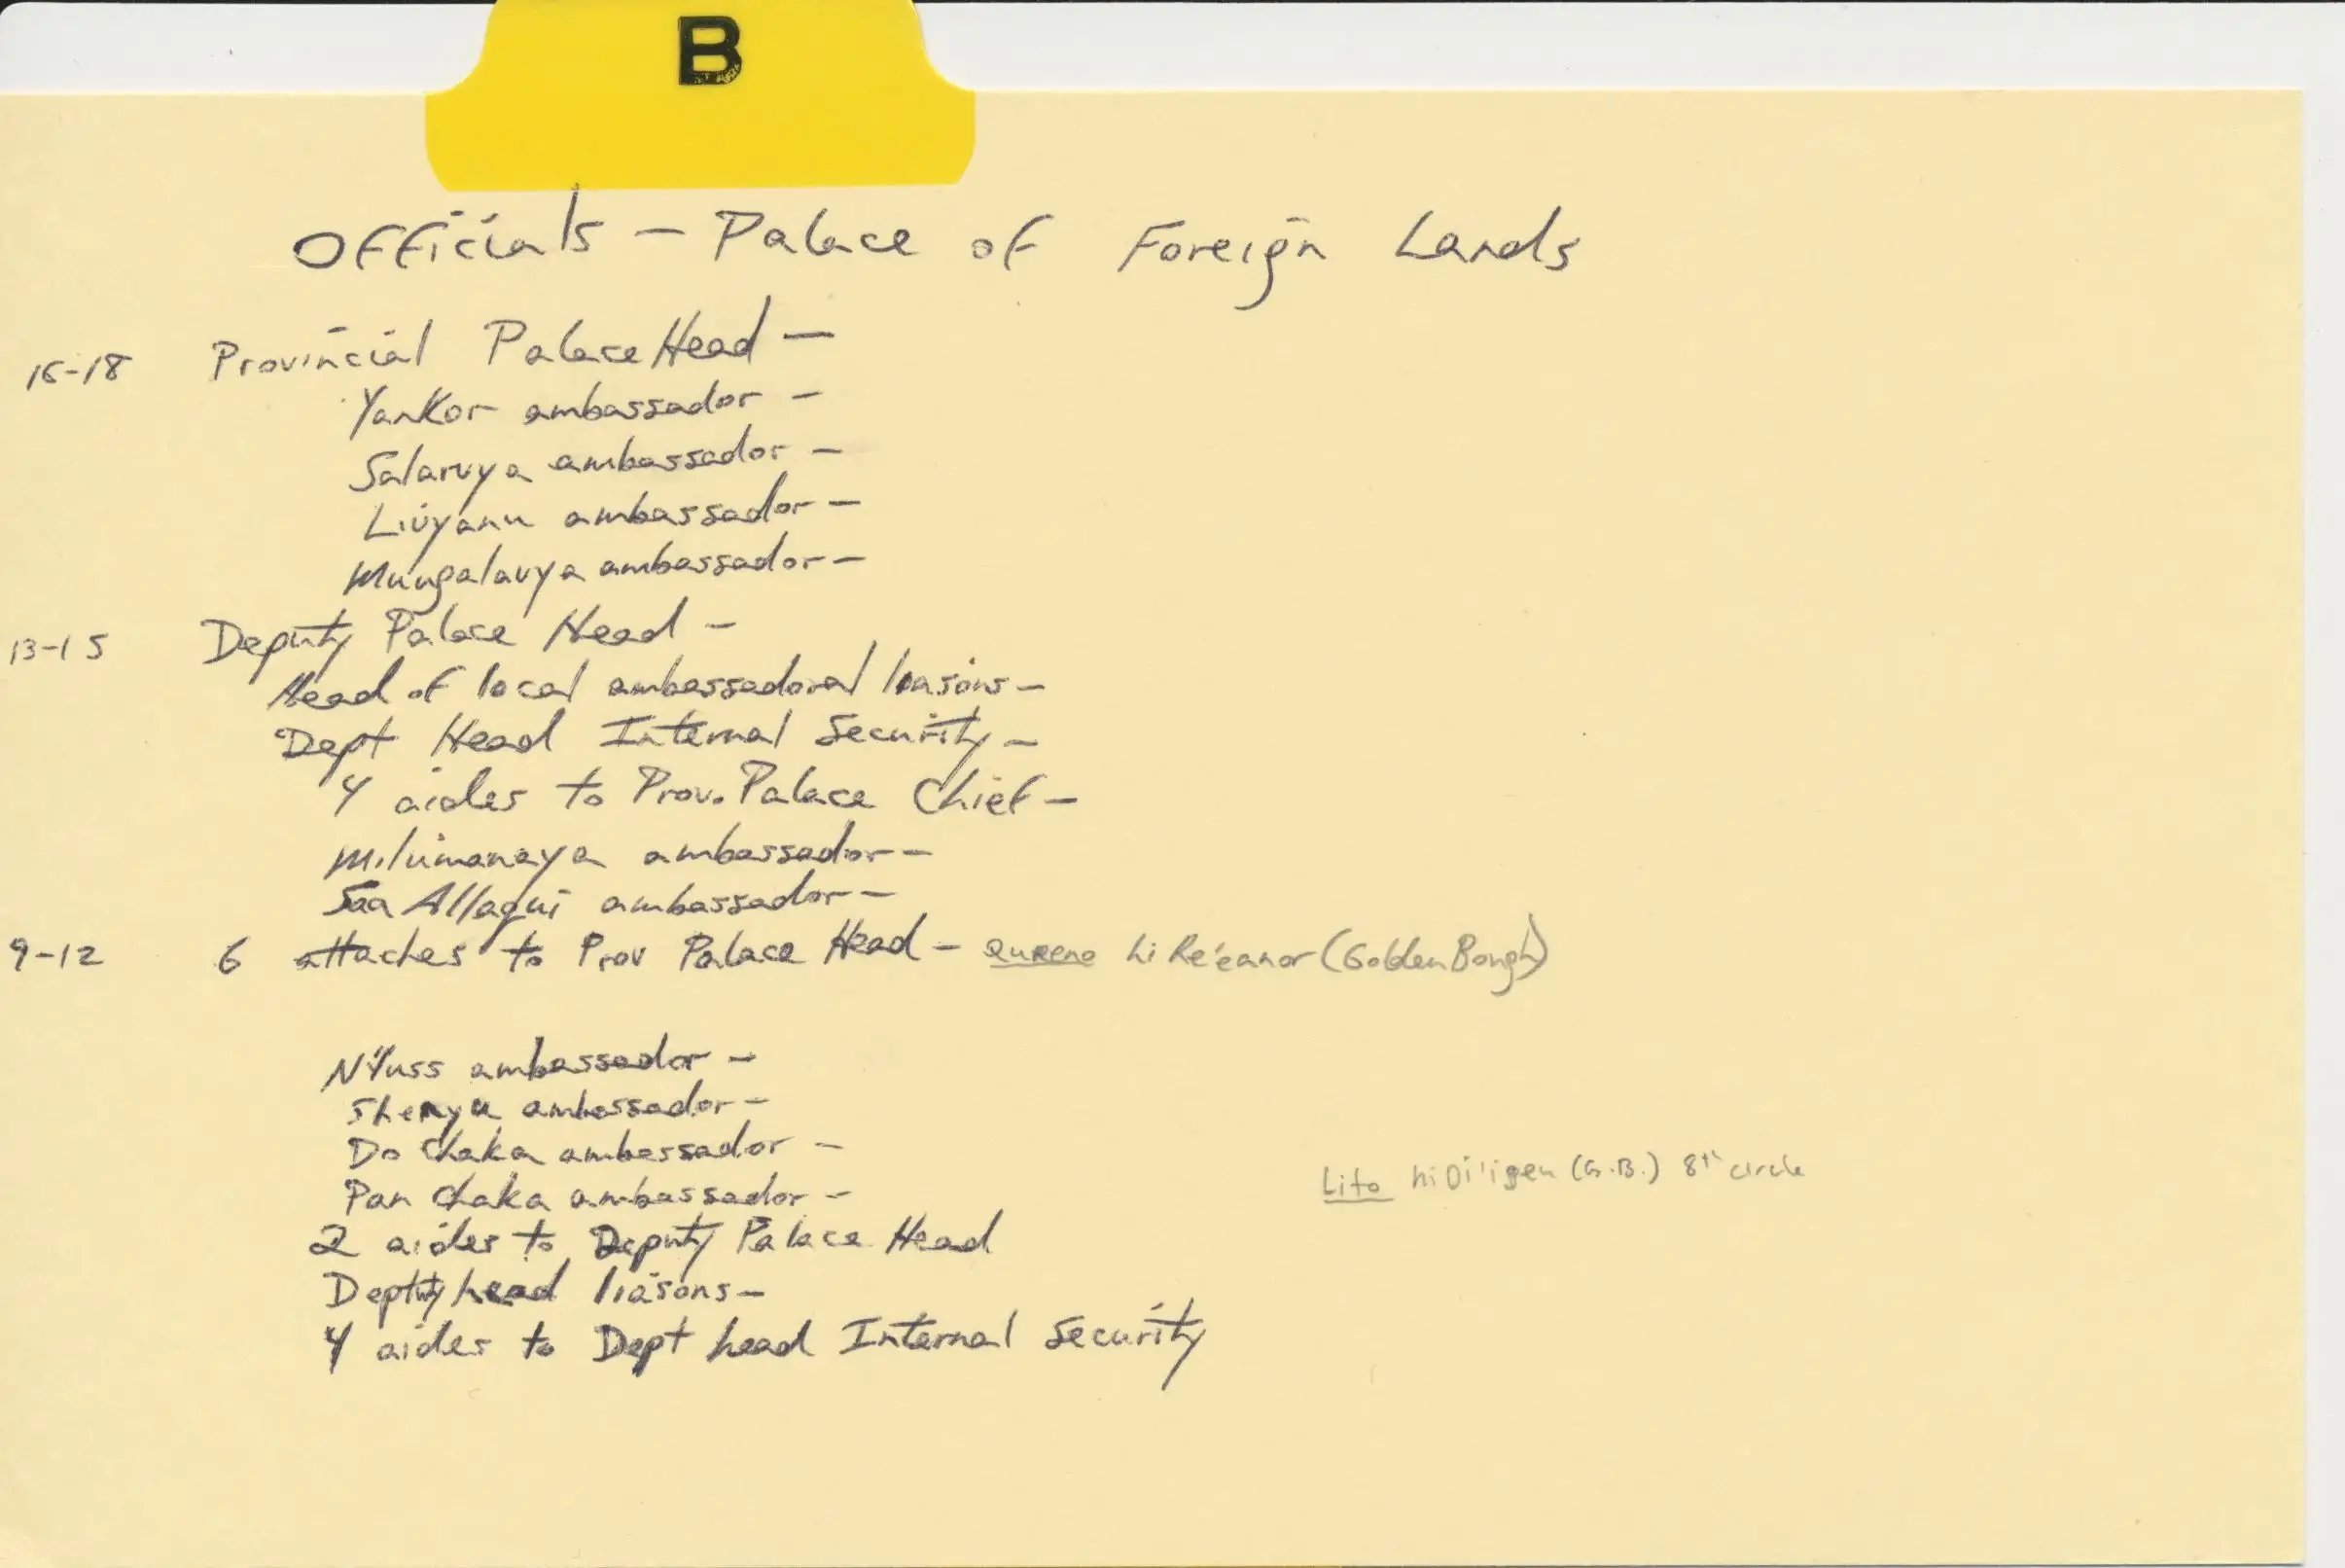 B
Officials - Palace of Foreign Lands
16-18 Provincial Palace Head -
Yankor ambassador -
Salarvya ambassador -
Livyanu ambassador -
Mungalavya ambassador -
13-15 Deputy Palace Head -
Head of local ambassadoral liasons -
Dept Head Internal Security -
4 aides to Prov. Palace Chief -
Milumanaya ambassador -
Saa Allaqui ambassador -
9-12 6 attaches to Prov Palace Head - Qureno hi Re'eanor (Golden Bough)
N'luss ambassador -
Shenyu ambassador -
Do Chaka ambassador -
Pan Chaka ambassador -
Lito hiDi'igen (G.B.) 8th circle
2 aides to Deputy Palace Head
Deptuty head liasons -
4 aides to Dept head Internal Security